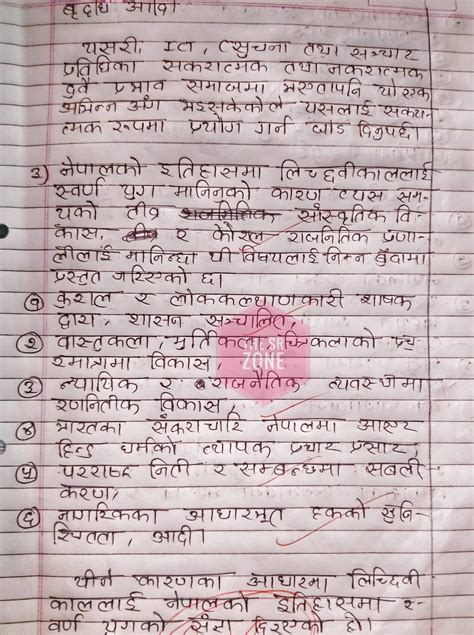 बृद्धि आदि
यसरी, Ict, त्सुचना तथा सञ्चार
प्रविधिका सकरात्मक तथा नकरात्मक
दुवै प्रभाव समाजमा भएतापनि यो एक
अभिन्न अंग भइसकेकोले यसलाई सकरा-
त्मक रुपमा प्रयोग गर्न जोड दिनुपर्छ।
३) नेपालको इतिहासमा लिच्छवीकाललाई
स्वर्ण युग मानिनको कारण त्यस सम-
यको तीव्र सांस्कृतिक वि-
कास, र कौशल राजनितिक प्रणा-
लीलाई मानिन्छ। यी विषयलाई निम्न बुंदामा
प्रस्तुत गरिएको छ।
१ कुशल र लोककल्याणकारी शाषक
द्वारा, शासन सञ्चालित,
२ वास्तुकला, मुर्तिकला, चित्रकलाको प्रचु-
रमात्रामा विकास,
THE SR
ZONE
३ न्यायिक र राजनैतिक व्यवस्थामा
रणनितीक विकास,
४ भारतका शंकराचार्य नेपालमा आएर
हिन्दु धर्मको व्यापक प्रचार प्रसार,
५ परराष्ट्र निती र सम्बन्धमा सबली-
करण,
६ नागरिकका आधारभूत हकको सुनि-
श्चितता, आदी।
यीनै कारणका आधारमा लिच्छिवी
काललाई नेपालको इतिहासमा स्-
वर्ण युगको संज्ञा दिइएको हो।